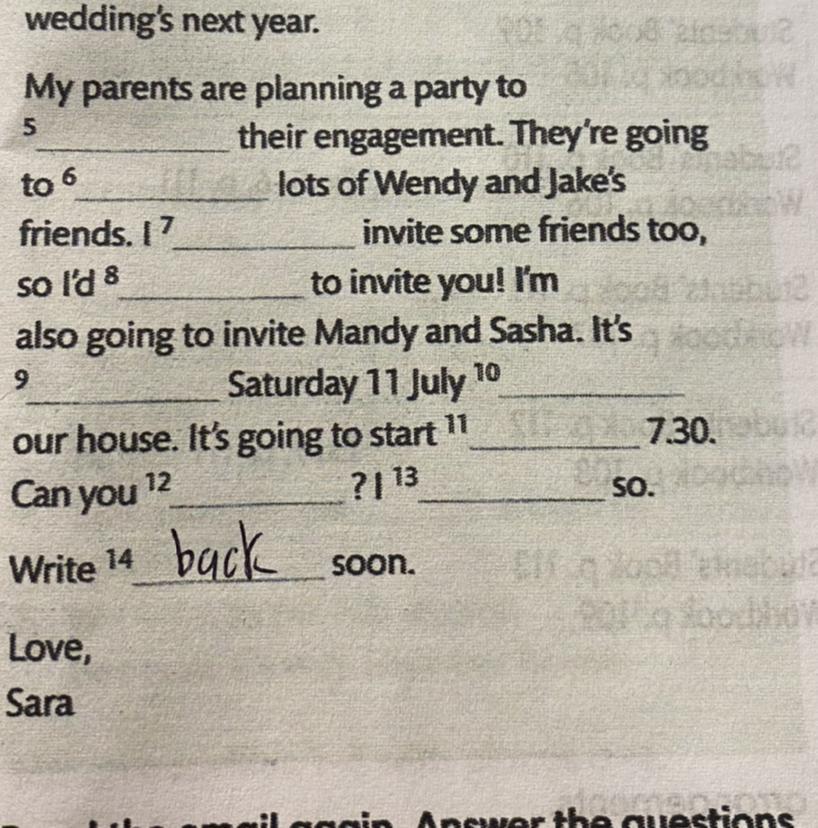 wedding's next year.
My parents are planning a party to
5__________ their engagement. They're going
to 6__________ lots of Wendy and Jake's
friends. I 7__________ invite some friends too,
so I'd 8__________ to invite you! I'm
also going to invite Mandy and Sasha. It's
9__________ Saturday 11 July 10__________
our house. It's going to start 11__________ 7.30.
Can you 12__________? I 13__________ so.
Write 14 back soon.
Love,
Sara
email again. Answer the questions